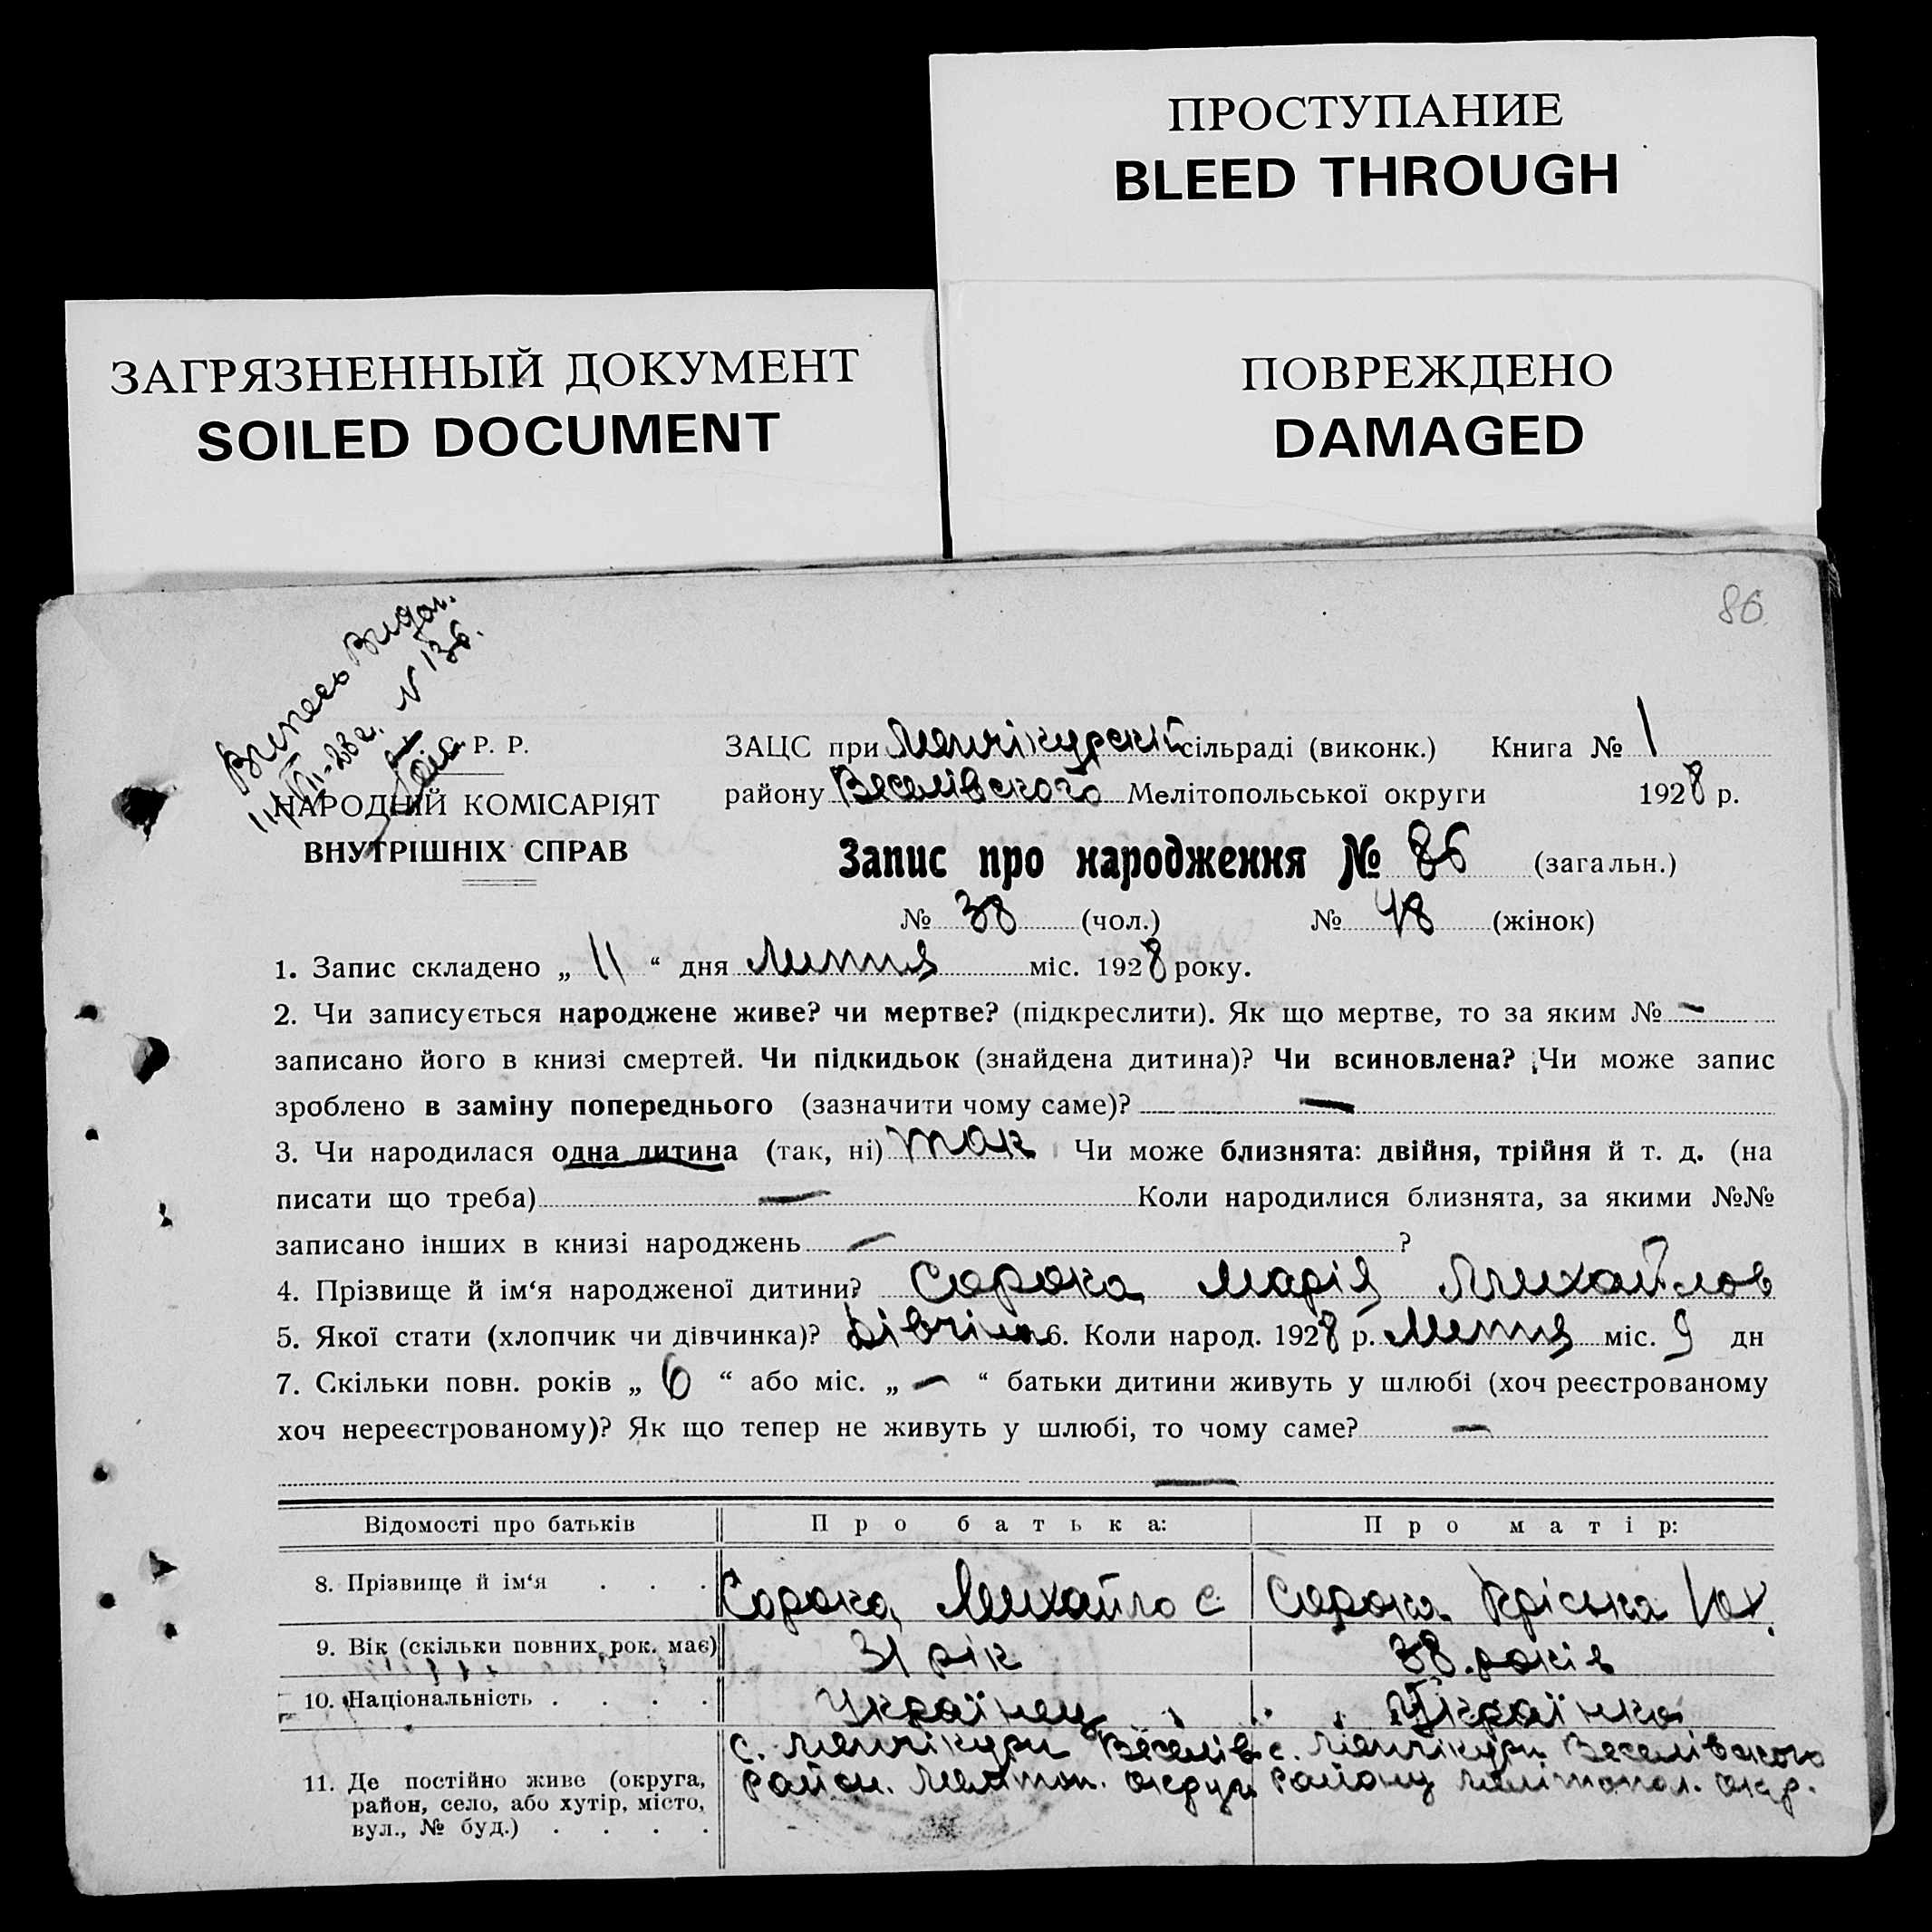 ПРОСТУПАНИЕ
BLEED THROUGH
ЗАГРЯЗНЕННЫЙ ДОКУМЕНТ
SOILED DOCUMENT
ПОВРЕЖДЕНО
DAMAGED
86
N 136.
С. Р. Р.
НАРОДНІЙ КОМІСАРІЯТ
ВНУТРІШНІХ СПРАВ
ЗАЦС при Менчікурскій сільраді (виконк.) Книга № 1
району Веселівского Мелітопольської округи 1928 р.
Запис про народження № 86 (загальн.)
№ 38 (чол.) № 48 (жінок)
1. Запис складено „ 11 “ дня Липня міс. 1928 року.
2. Чи записується народжене живе? чи мертве? (підкреслити). Як що мертве, то за яким № —
записано його в книзі смертей. Чи підкидьок (знайдена дитина)? Чи всиновлена? Чи може запис
зроблено в заміну попереднього (зазначити чому саме)? —
3. Чи народилася одна дитина (так, ні) так Чи може близнята: двійня, трійня й т. д. (на
писати що треба) — Коли народилися близнята, за якими №№
записано інших в книзі народжень — ?
4. Прізвище й ім‘я народженої дитини? Сорока Марія Михайлов
5. Якої стати (хлопчик чи дівчинка)? Дівчіна 6. Коли народ. 1928 р. Липня міс. 9 дн
7. Скільки повн. років „ 6 “ або міс. „ — “ батьки дитини живуть у шлюбі (хоч реєстрованому
хоч нереєстрованому)? Як що тепер не живуть у шлюбі, то чому саме? —
—
Відомості про батьків Про батька: Про матір:
8. Прізвище й ім‘я . . . Сорока Михайло С Сорока
9. Вік (скільки повних рок. має) 31 рік 38 років
10. Національність . . . . Українец Українка
11. Де постійно живе (округа, район, село, або хутір, місто, вул., № буд.) . . . .
с. Менчікури Веселів с. Менчікури Веселівского
район. Мелітоп. округи району Мелітопол. окр.